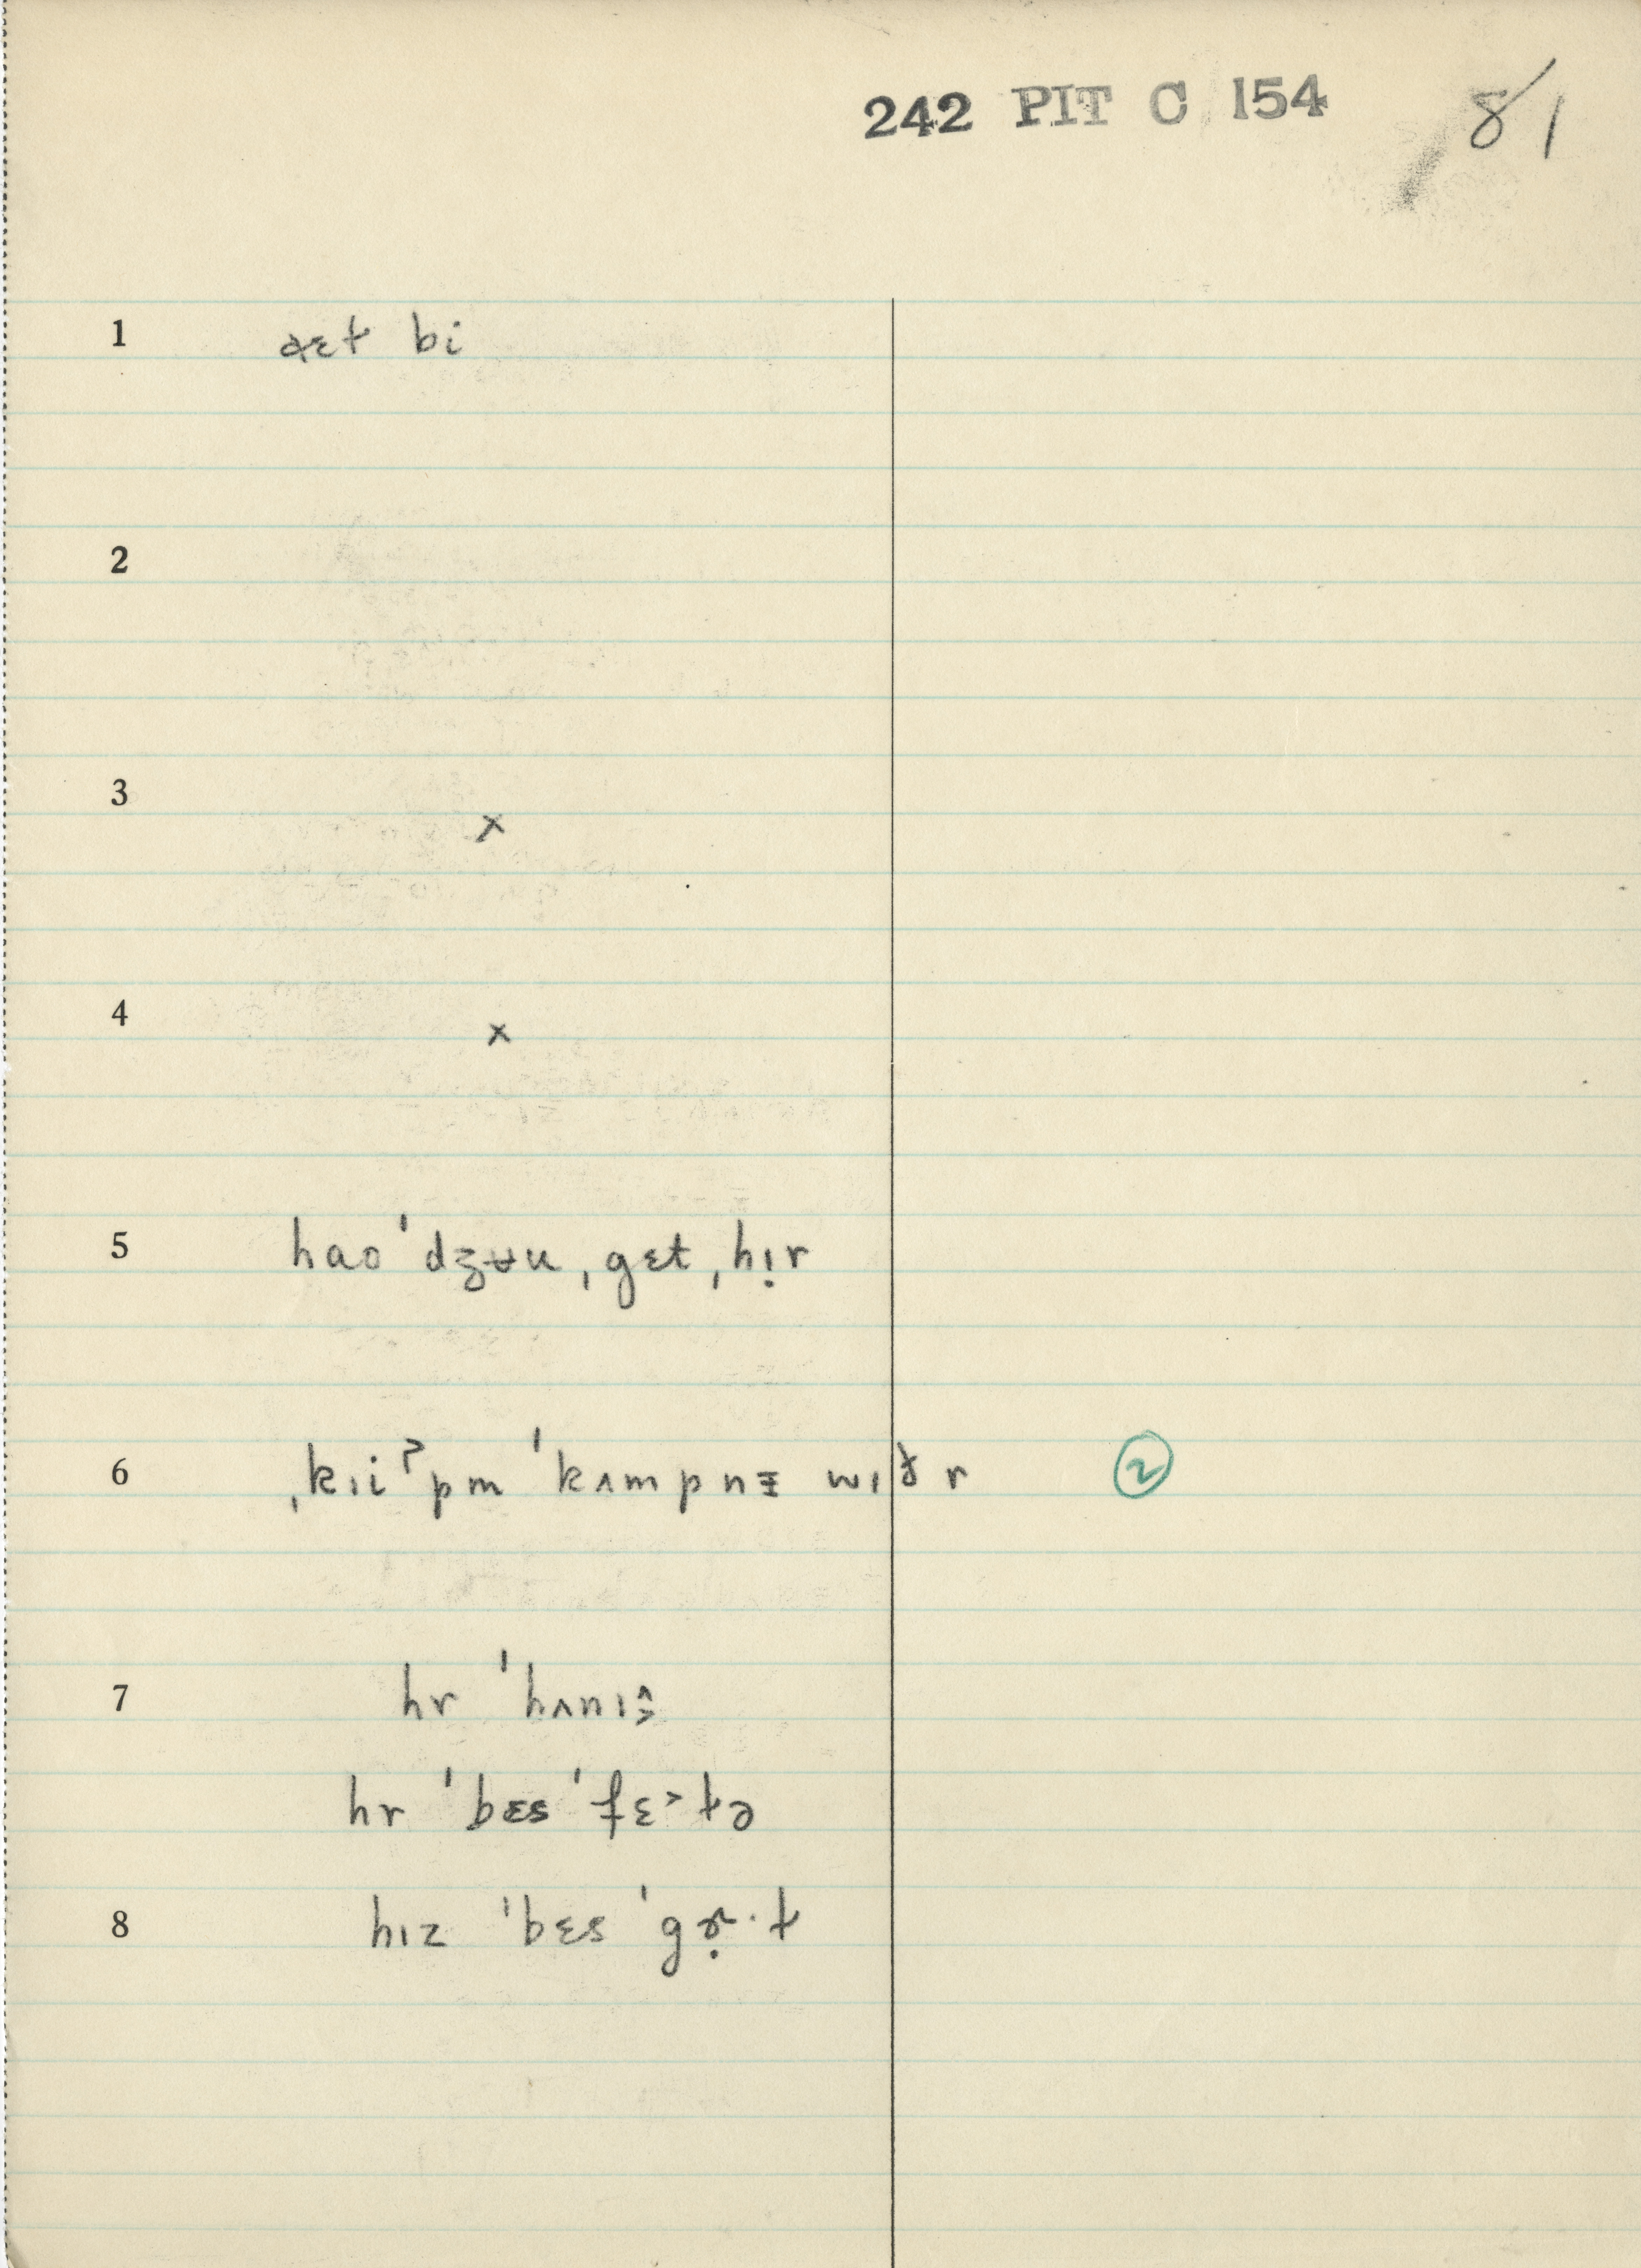 242 PIT C 154 81
1 ᶁɛt bi
2
3 x
4 x
5 hao ˈdʒʉu ˌgɛt ˌhịr
6 ˌkɪiʔpm ˈkʌmpnɪ̵ wɪðr ②
7 hr ˈhʌnɪ
hr ˈbɛs ˈfɛ˃tə
8 hɪz ˈbɛs ˈg